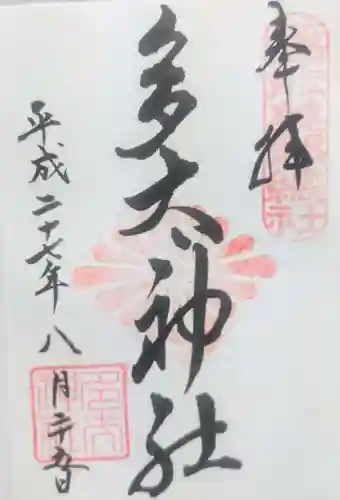 奉拝
多太神社
平成二十七年八月二十五日